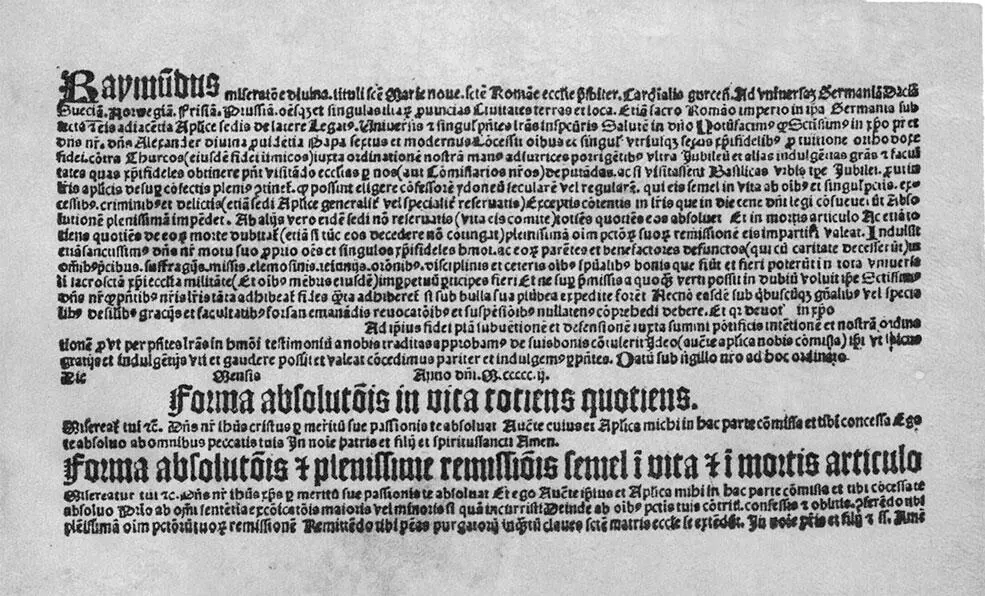 Raymūdus miseratōe diuina. tituli scē Marie noue. sctē Romāe ecclie p̄sbiter. Cardīalis gurceñ. Ad vniuersaȝ Germaniā Daciā
Sueciā. Norwegiā. Frisiā. Prussiā. oēsqȝ et singulas illaꝝ puincias Ciuitates terras et loca. Etiā sacro Romāo imperio in ipa Germania sub
iecta ⁊ eis adiacētia Aplice sedis de latere Legatꝰ. Vniuersis ⁊ singulˀ pñtes lr̄as inspcturis Salutē in dño Notūfacimꝰ ꝙ Sctissimꝰ in xp̄o pr̄ et
dns nr̄. dns Alexander diuina ꝓuidētia Papa sextus et modernus Cōcessit oibus et singulˀ vtriusqȝ sexꝰ xp̄ifidelibꝰ ꝓ tuitione ortho doxe
fidei. cōtra Thurcos (eiusdē fidei īimicos) iuxta ordinationē nostrā manꝰ adiutrices porrigētibꝰ vltra Jubileū et alias indulgētias grās ⁊ facul
tates quas xp̄ifideles obtinere pn̄t visitādo ecclias ꝑ nos (aut Cōmissarios nr̄os) deputādas. ac si visitassent Basilicas vrbis tp̄e Jubilei. ꝓut in
lris aplicis desuꝑ cōfectis pleniꝰ ꝯtinet. ꝙ possint eligere cōfessorē ydoneū secularē vel regularē. qui eis semel in vita ab oibꝰ et singulˀ pctis. ex
cessibꝰ. criminibus et delictis (etiā sedi Aplice generalit̄ vel specialit̄ reservatis) Exceptis cōtentis in lris que in die cene dn̄i legi cōsueuer̄ūt Abso
lutionē plenissimā impēdet. Ab alijs vero eidē sedi nō reseruatis (vita eis comite) totiēs quotiēs eos absoluat Et in mortis articulo Ac etiā to
tiens quotiēs de eoꝝ morte dubitat̄ (etiā si tūc eos decedere nō cōtingat) plenissimā oim pctōꝝ suoꝝ remissionē eis impartiri valeat. Indulsit
etiā sanctissimꝰ dns nr̄ motu suo ꝓprio oēs et singulos xp̄ifideles hmoi. ac eoꝝ parētes et benefactores defunctos (qui cū caritate decesserūt) in
omībꝰ p̄cibus. suffragijs. missis. elemosinis. ieiunijs. orōnibꝰ. disciplinis et ceteris oibꝰ sp̄ualibꝰ bonis que fiūt et fieri poterūt in tota vniuersa
li sacrosctā xp̄i ecclia militātē (Et oibꝰ mēbris eiusdē) in ꝑpetuū ꝑticipes fieri Et ne suꝑ p̄missis a quoqȝ verti possit in dubiū voluit ip̄e Sctissimꝰ
dns nr̄ ꝙ pn̄tibꝰ nr̄is lris tāta adhibeat̄ fides quāta adhiberet̄ si sub bulla sua plūbea expedite forēt Necnō easdē sub quibuscūqȝ gn̄alibꝰ vel specia
libꝰ de silibꝰ gracijs et facultatibꝰ forsan emanādis reuocatōibꝰ et suspēsiōibꝰ nullatenꝰ cōprehēdi debere. Et qr deuotˀ in xp̄o
Ad ipsius fidei piā subuētionē et defensionē iuxta summi pōtificis intētionē et nostrā ordina
tionē ꝓ vt per pn̄tes lr̄as in hmōi testimoniū a nobis traditas approbamꝰ de suis bonis cōtulerit Jdeo (aucte aplica nobis cōmissa) ip̄i vt ip̄sius
gratijs et indulgētijs vti et gaudere possit et valeat cōcedimus pariter et indulgemꝰ ꝑ pn̄tes. Datū sub sigillo nr̄o ad hoc ordinato
Die Mensis Anno dn̄i. M.ccccc.ij.
Forma absolutōis in vita totiens quotiens.
Misereat̄ tui ⁊c. Dn̄s nr̄ ihūs cristus ꝑ meritū sue passionis te absoluat Aucte cuius et Aplica michi in hac parte cōmissa et tibi concessa Ego
te absoluo ab omnibus peccatis tuis Jn noīe patris et filij et spiritussancti Amen.
Forma absolutōis ⁊ plenissime remissiōis semel ī vita ⁊ ī mortis articulo
Misereatur tui ⁊c. Dn̄s nr̄ ihūs xp̄s ꝑ meritū sue passionis te absoluat Et ego Aucte ip̄ius et Aplica mihi in hac parte cōmissa et tibi cōcessa te
absoluo Primo ab om̄i sentētia excōicatōis maioris vel minoris si quā incurristi Deinde ab oibꝰ pctis tuis cōtritꝭ. confessꝭ ⁊ oblitis. ꝯferēdo tibi
plenissimā oim pctōrū tuoꝝ remissionē Remittēdo tibi penas purgatorij inquātū claues sctē matris ecclie se extēdūt. Jn noīe pr̄is et filij ⁊ ss. Amē